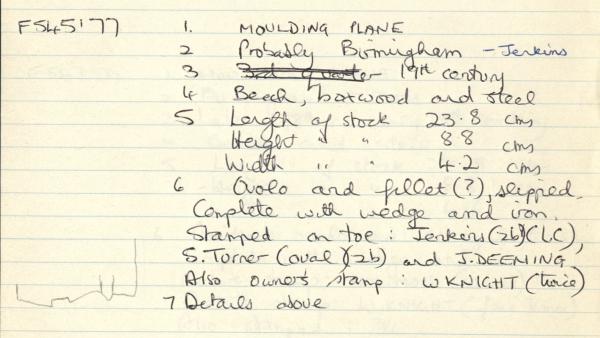 F545'77
1. MOULDING PLANE
2 Probably Birmingham - Jenkins
3 19th century
4 Beech, boxwood and steel
5 Length of stock 23.8 cms
Height " " 8.8 cms
Width " " 4.2 cms
6 Ovolo and fillet (?), slipped.
Complete with wedge and iron.
Stamped on toe: Jenkins (2b) (LC),
S. Turner (oval) (2b) and J. DEEMING
Also owner's stamp: W KNIGHT (twice)
7 Details above